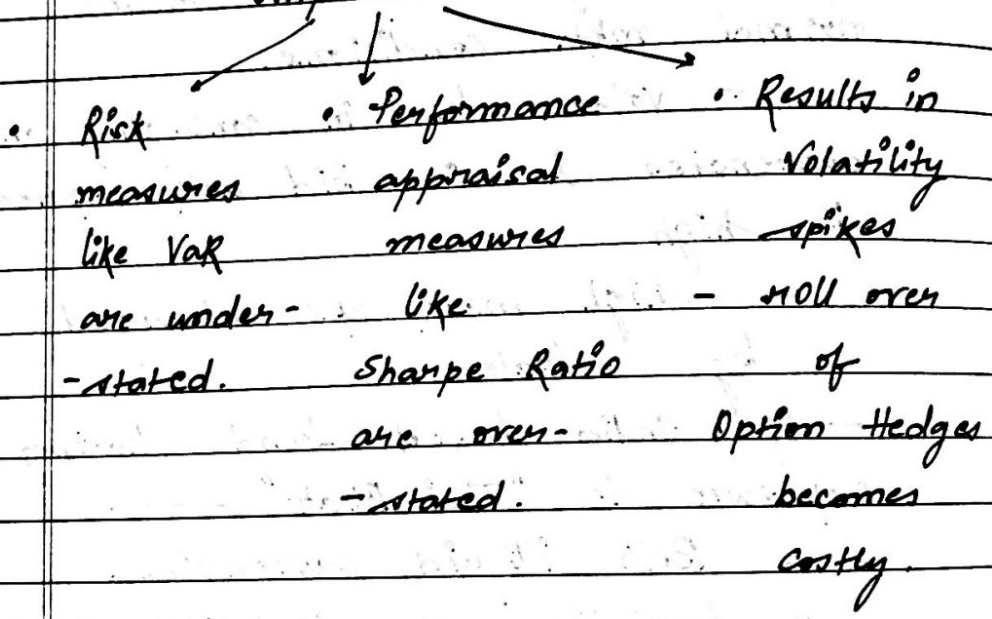 • Risk
measures
like VaR
are under-
-stated.
• Performance
appraisal
measures
like
Sharpe Ratio
are over-
-stated.
• Results in
Volatility
spikes
- roll over
of
Option Hedges
becomes
costly.